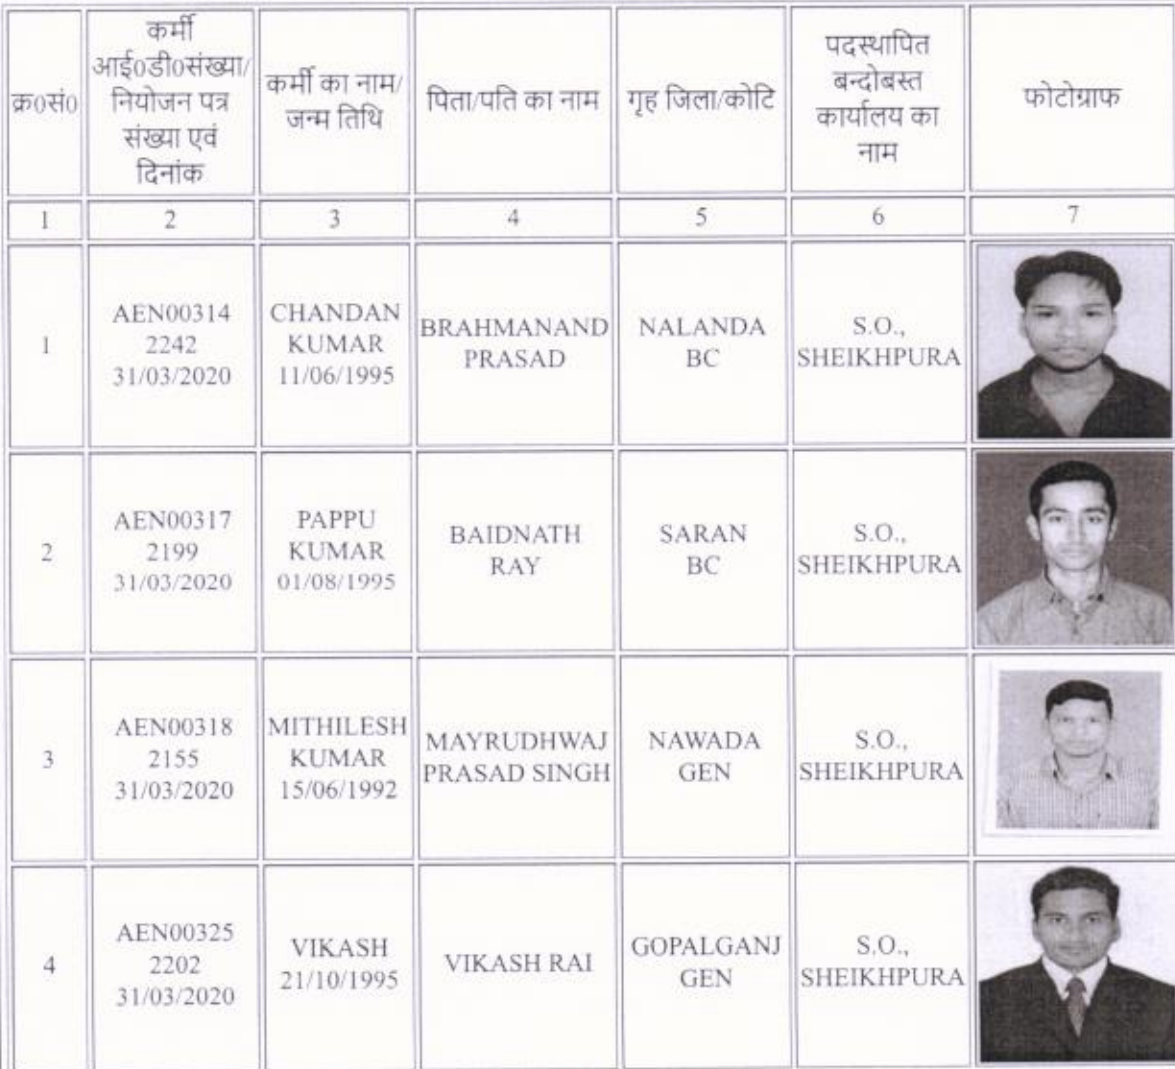 क्र0सं0
कर्मी
आई0डी0संख्या/
नियोजन पत्र
संख्या एवं
दिनांक
कर्मी का नाम/
जन्म तिथि
पिता/पति का नाम
गृह जिला/कोटि
पदस्थापित
बन्दोबस्त
कार्यालय का
नाम
फोटोग्राफ
1
2
3
4
5
6
7
1
AEN00314
2242
31/03/2020
CHANDAN
KUMAR
11/06/1995
BRAHMANAND
PRASAD
NALANDA
BC
S.O.,
SHEIKHPURA
2
AEN00317
2199
31/03/2020
PAPPU
KUMAR
01/08/1995
BAIDNATH
RAY
SARAN
BC
S.O.,
SHEIKHPURA
3
AEN00318
2155
31/03/2020
MITHILESH
KUMAR
15/06/1992
MAYRUDHWAJ
PRASAD SINGH
NAWADA
GEN
S.O.,
SHEIKHPURA
4
AEN00325
2202
31/03/2020
VIKASH
21/10/1995
VIKASH RAI
GOPALGANJ
GEN
S.O.,
SHEIKHPURA